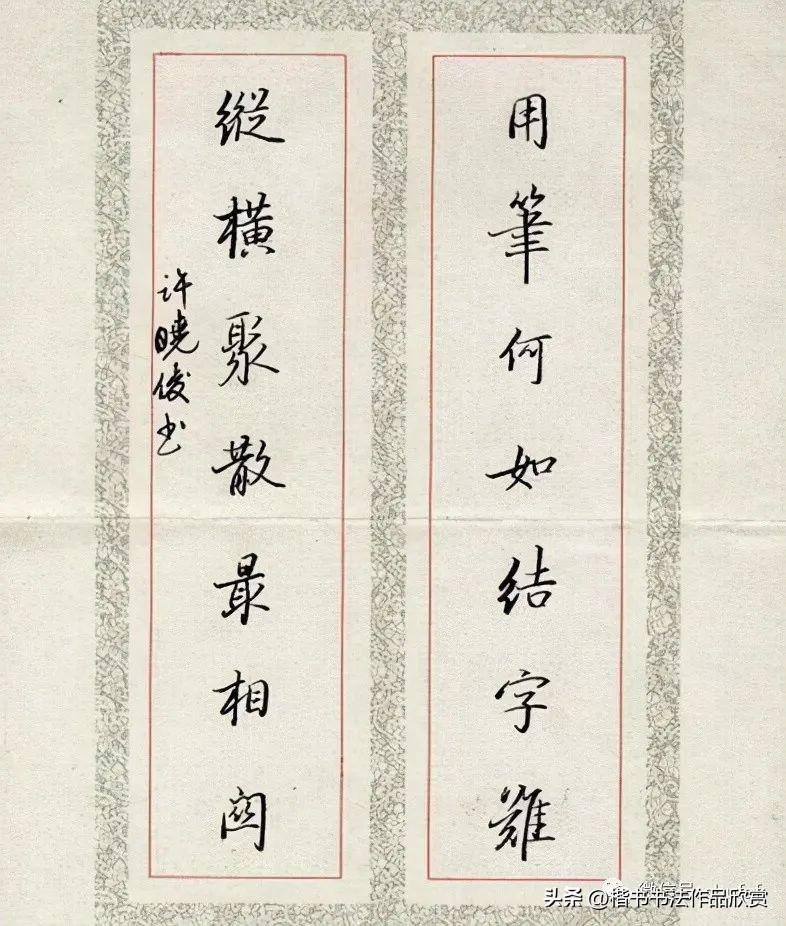 用筆何如結字難
縱横聚散最相関
许曉俊书
头条 @楷书书法作品欣赏